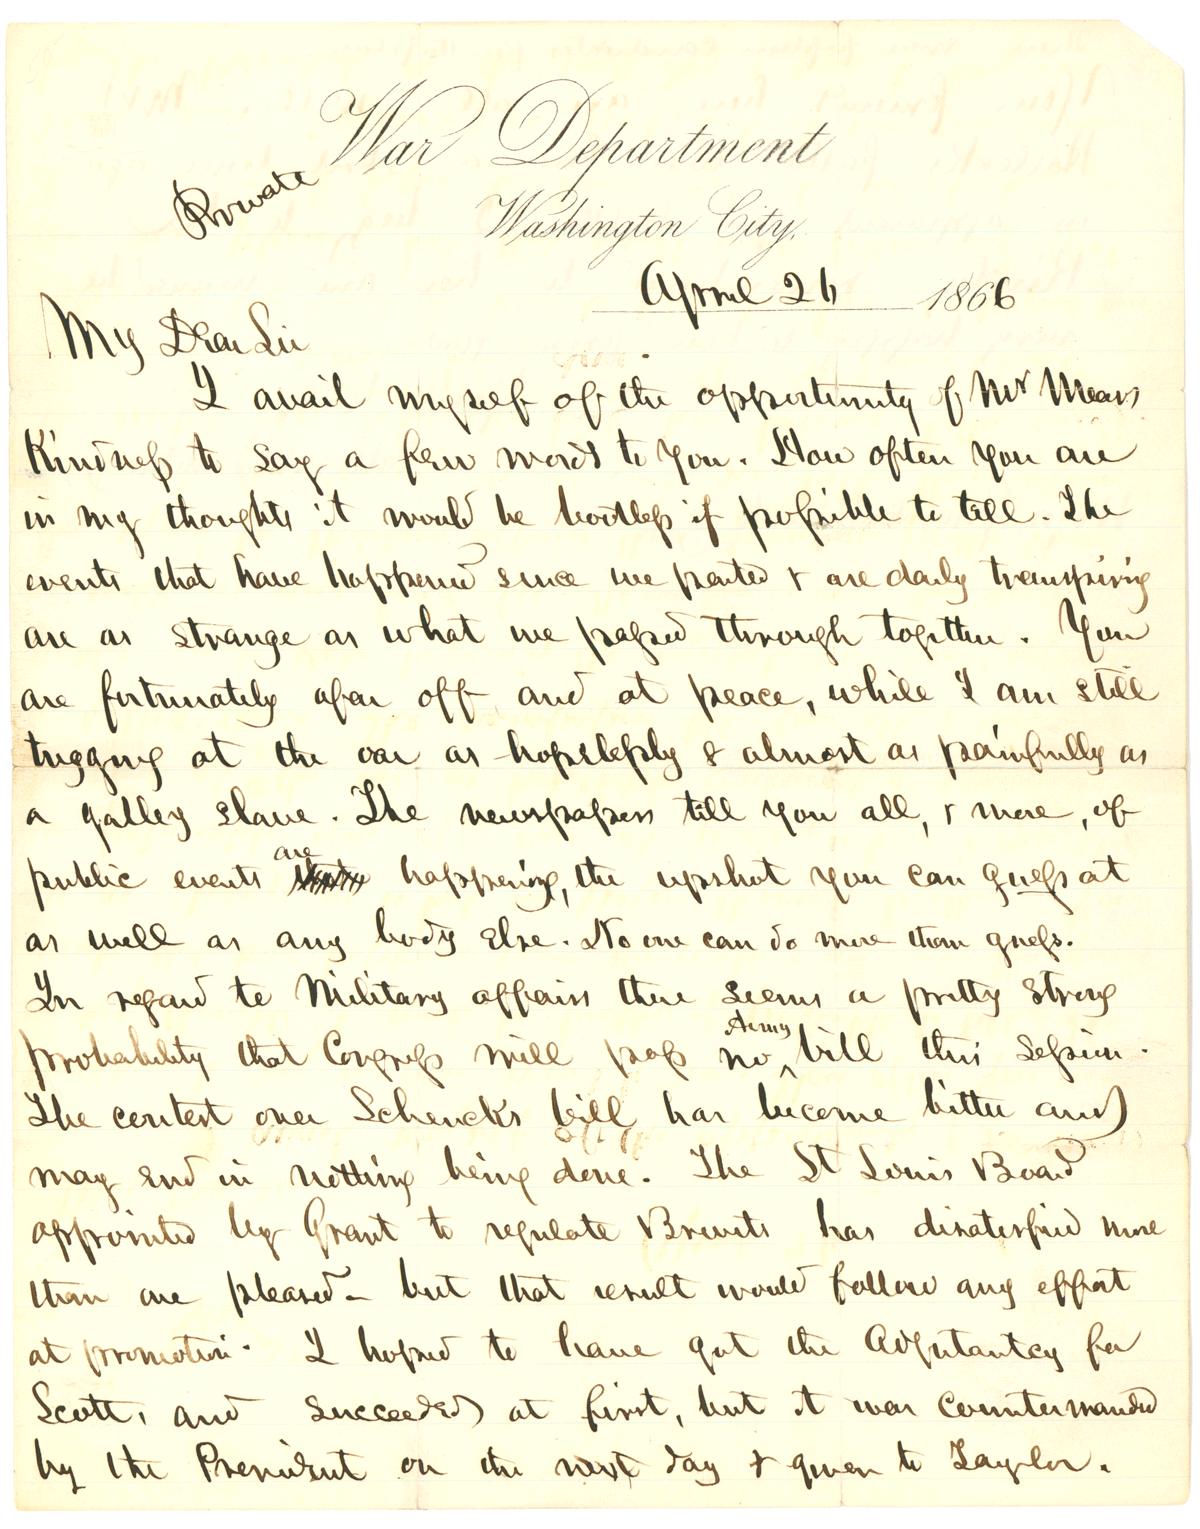 War Department
Private
Washington City.
April 26 1866
My Dear Sir
I avail myself of the opportunity of Mr Mears
Kindness to say a few words to you. How often you are
in my thoughts it would be bootless if possible to tell. The
events that have happened since we parted & are daily transpiring
are as strange as what we passed through together. You
are fortunately afar off and at peace, while I am still
tugging at the oar as hopelessly & almost as painfully as
a galley slave. The newspapers tell you all, & more, of
public events are happening, the upshot you can guess at
as well as any body else. No one can do more than guess.
In regard to Military affairs there seems a pretty strong
probability that Congress will pass no Army bill this session.
The contest over Schencks bill has become bitter and
may end in nothing being done. The St Louis Board
appointed by Grant to regulate Brevets has disatisfied more
than are pleased – but that result would follow any effort
at promotion. I hoped to have got the Adjutantcy for
Scott, and succeeded at first, but it was countermanded
by the President on the next day & given to Taylor.